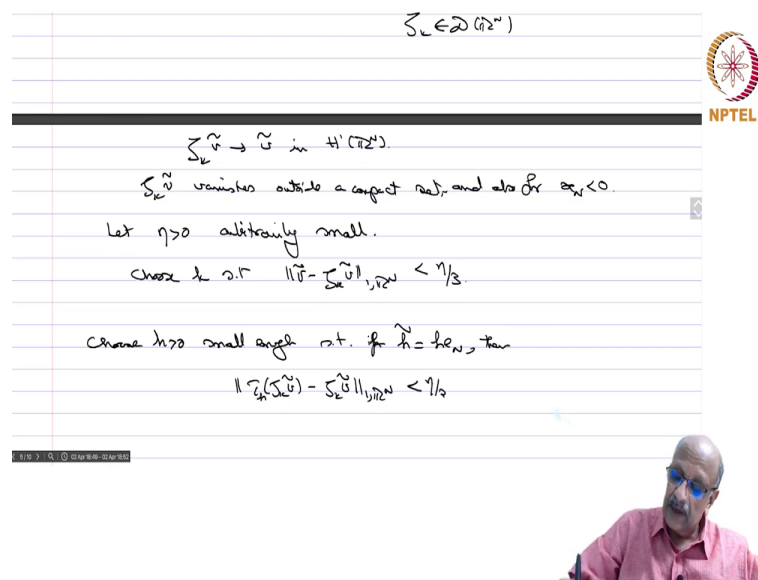 ζ_k ∈ D(ℝ^N)
NPTEL
ζ_k ṽ → ṽ in H¹(ℝ^N).
ζ_k ṽ vanishes outside a compact set, and also for x_N < 0.
Let η > 0 arbitrarily small.
Choose k s.t ‖ṽ - ζ_k ṽ‖_{1,ℝ^N} < η/3.
Choose h > 0 small enough s.t. if h̃ = he_N, then
‖τ_h̃(ζ_k ṽ) - ζ_k ṽ‖_{1,ℝ^N} < η/3
5/10 02 Apr 18:49 - 02 Apr 18:52